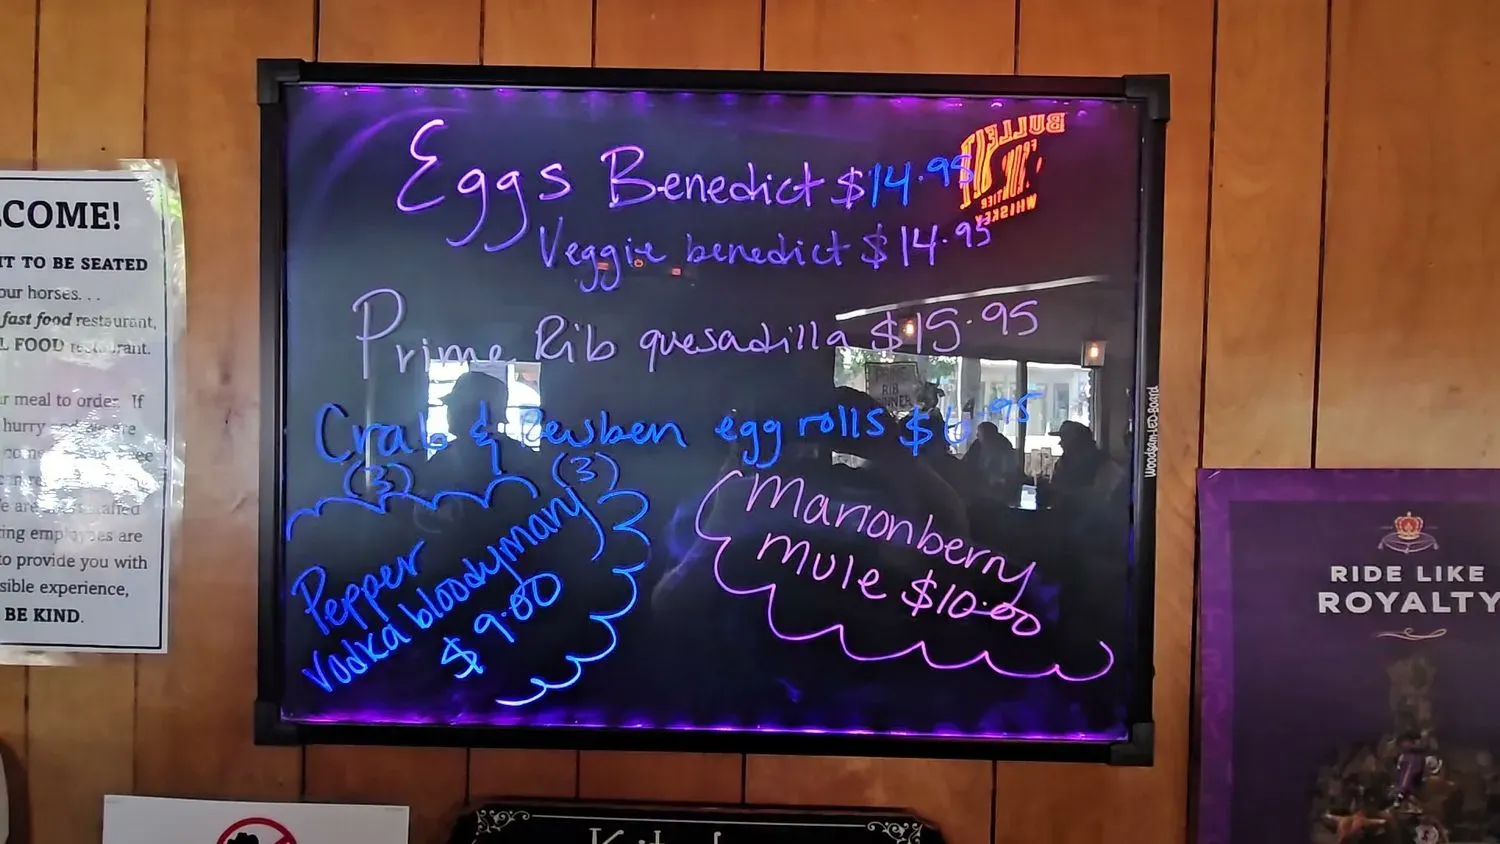 Eggs Benedict $14.95
Veggie benedict $14.95
Prime Rib quesadilla $15.95
Crab & Reuben egg rolls $6.95
(3) (3)
Pepper
vodka bloodymary
$9.00
Marionberry
mule $10.00
BULLEIT
FRONTIER
WHISKEY
Woodsam LED Board
COME!
IT TO BE SEATED
our horses. . .
fast food restaurant,
FOOD restaurant.
meal to order. If
hurry
are
ing employees are
to provide you with
sible experience,
BE KIND.
RIB
DINNER
RIDE LIKE
ROYALTY